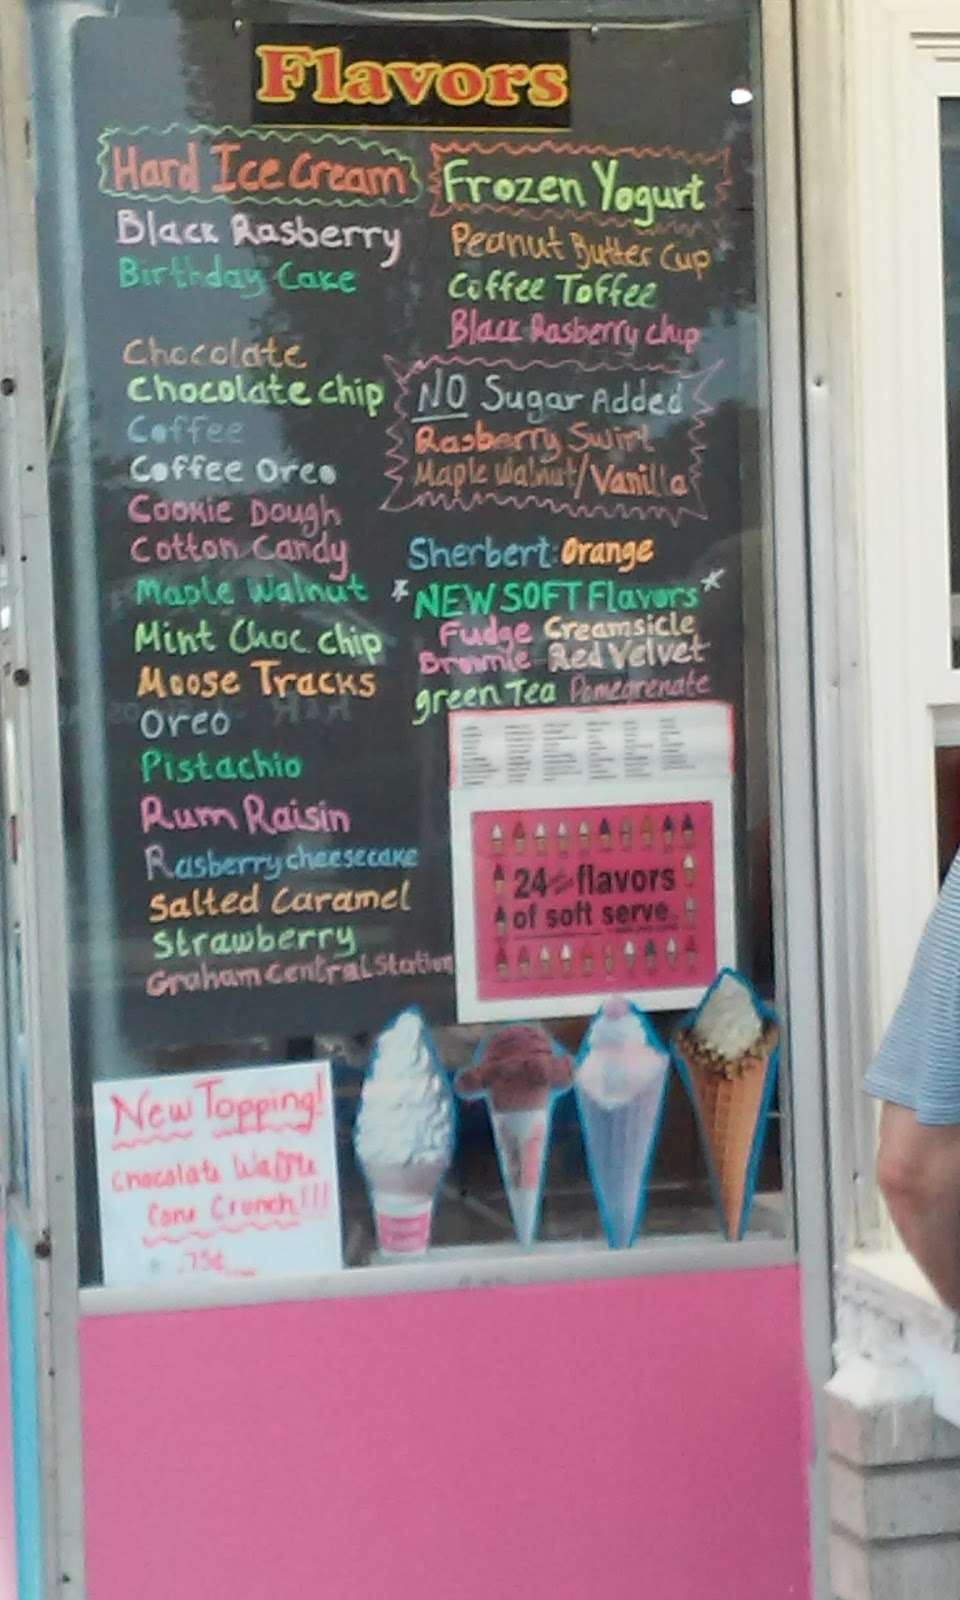 Flavors
Hard Ice Cream
Black Rasberry
Birthday Cake
Chocolate
Chocolate chip
Coffee
Coffee Oreo
Cookie Dough
Cotton Candy
Maple Walnut
Mint Choc chip
Moose Tracks
Oreo
Pistachio
Rum Raisin
Rasberry cheesecake
Salted Caramel
Strawberry
Graham Central Station
Frozen Yogurt
Peanut Butter Cup
Coffee Toffee
Black Rasberry chip
NO Sugar Added
Rasberry Swirl
Maple Walnut/Vanilla
Sherbert: Orange
*NEW SOFT Flavors*
Fudge Creamsicle
Brownie Red Velvet
green Tea Pomegrenate
24 flavors
of soft serve
New Topping!
Chocolate Waffle
Cone Crunch!!!
.75¢